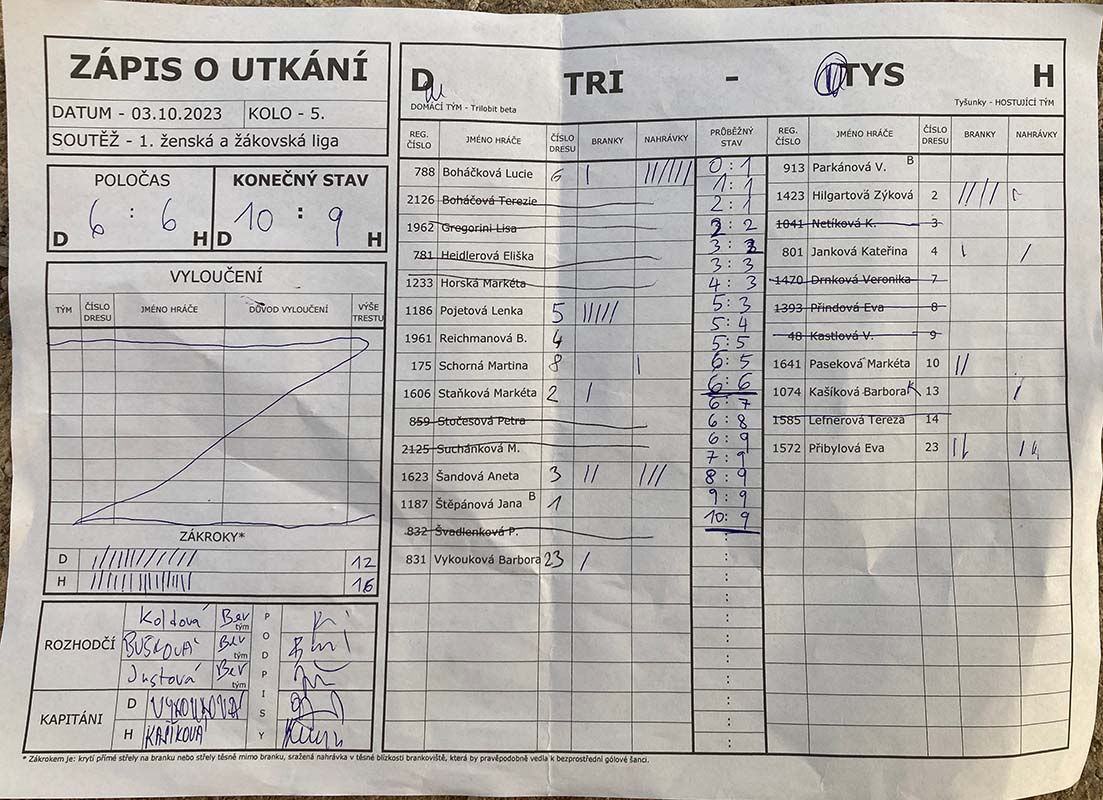 ZÁPIS O UTKÁNÍ
DATUM - 03.10.2023 KOLO - 5.
SOUTĚŽ - 1. ženská a žákovská liga
POLOČAS
6 : 6
D H
KONEČNÝ STAV
10 : 9
D H
VYLOUČENÍ
TÝM ČÍSLO DRESU JMÉNO HRÁČE DŮVOD VYLOUČENÍ VÝŠE TRESTU
ZÁKROKY*
D 12
H 16
ROZHODČÍ
Koldová Bev tým
BUŠKOVÁ Bev tým
Justová Bev tým
PODPISY
KAPITÁNI
D VYKOUKOVÁ
H KAŠÍKOVÁ
D TRI - TYS H
DOMÁCÍ TÝM - Trilobit beta Tyšunky - HOSTUJÍCÍ TÝM
REG. ČÍSLO JMÉNO HRÁČE ČÍSLO DRESU BRANKY NAHRÁVKY PRŮBĚŽNÝ STAV REG. ČÍSLO JMÉNO HRÁČE ČÍSLO DRESU BRANKY NAHRÁVKY
788 Boháčková Lucie 6 I IIIIII
2126 Boháčová Terezie
1962 Gregorini Lisa
781 Heidlerová Eliška
1233 Horská Markéta
1186 Pojetová Lenka 5 IIIII
1961 Reichmanová B. 4
175 Schorná Martina 8 I
1606 Staňková Markéta 2 I
859 Stočesová Petra
2125 Suchánková M.
1623 Šandová Aneta 3 II III
1187 Štěpánová Jana B 1
832 Švadlenková P.
831 Vykouková Barbora 23 I
0 : 1
1 : 1
2 : 1
2 : 2
3 : 2
3 : 3
4 : 3
5 : 3
5 : 4
5 : 5
6 : 5
6 : 6
6 : 7
6 : 8
6 : 9
7 : 9
8 : 9
9 : 9
10 : 9
913 Parkánová V. B
1423 Hilgartová Zýková 2 IIII
1041 Netíková K. 3
801 Janková Kateřina 4 I I
1470 Drnková Veronika 7
1393 Přindová Eva 8
48 Kastlová V. 9
1641 Paseková Markéta 10 II
1074 Kašíková Barbora K 13 I
1585 Lefnerová Tereza 14
1572 Přibylová Eva 23 II II
* Zákrokem je: krytí přímé střely na branku nebo střely těsně mimo branku, sražená nahrávka v těsné blízkosti brankoviště, která by pravěpodobně vedla k bezprostřední gólové šanci.